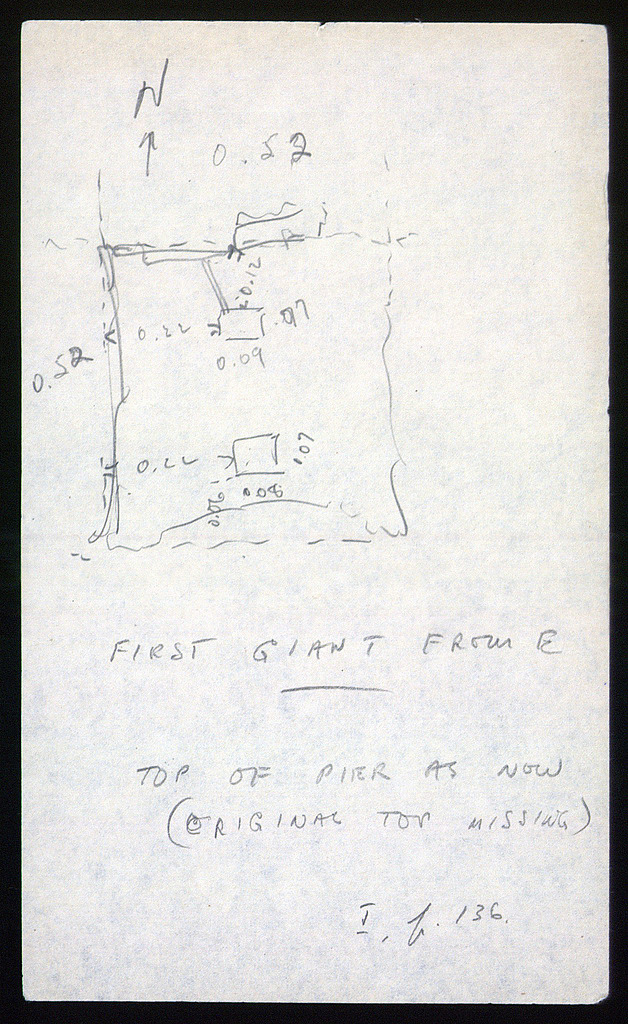 N
0.52
0.12
0.22
.07
0.09
0.52
0.22
.07
0.08
0.06
FIRST GIANT FROM E
TOP OF PIER AS NOW
(ORIGINAL TOP MISSING)
I, p. 136.